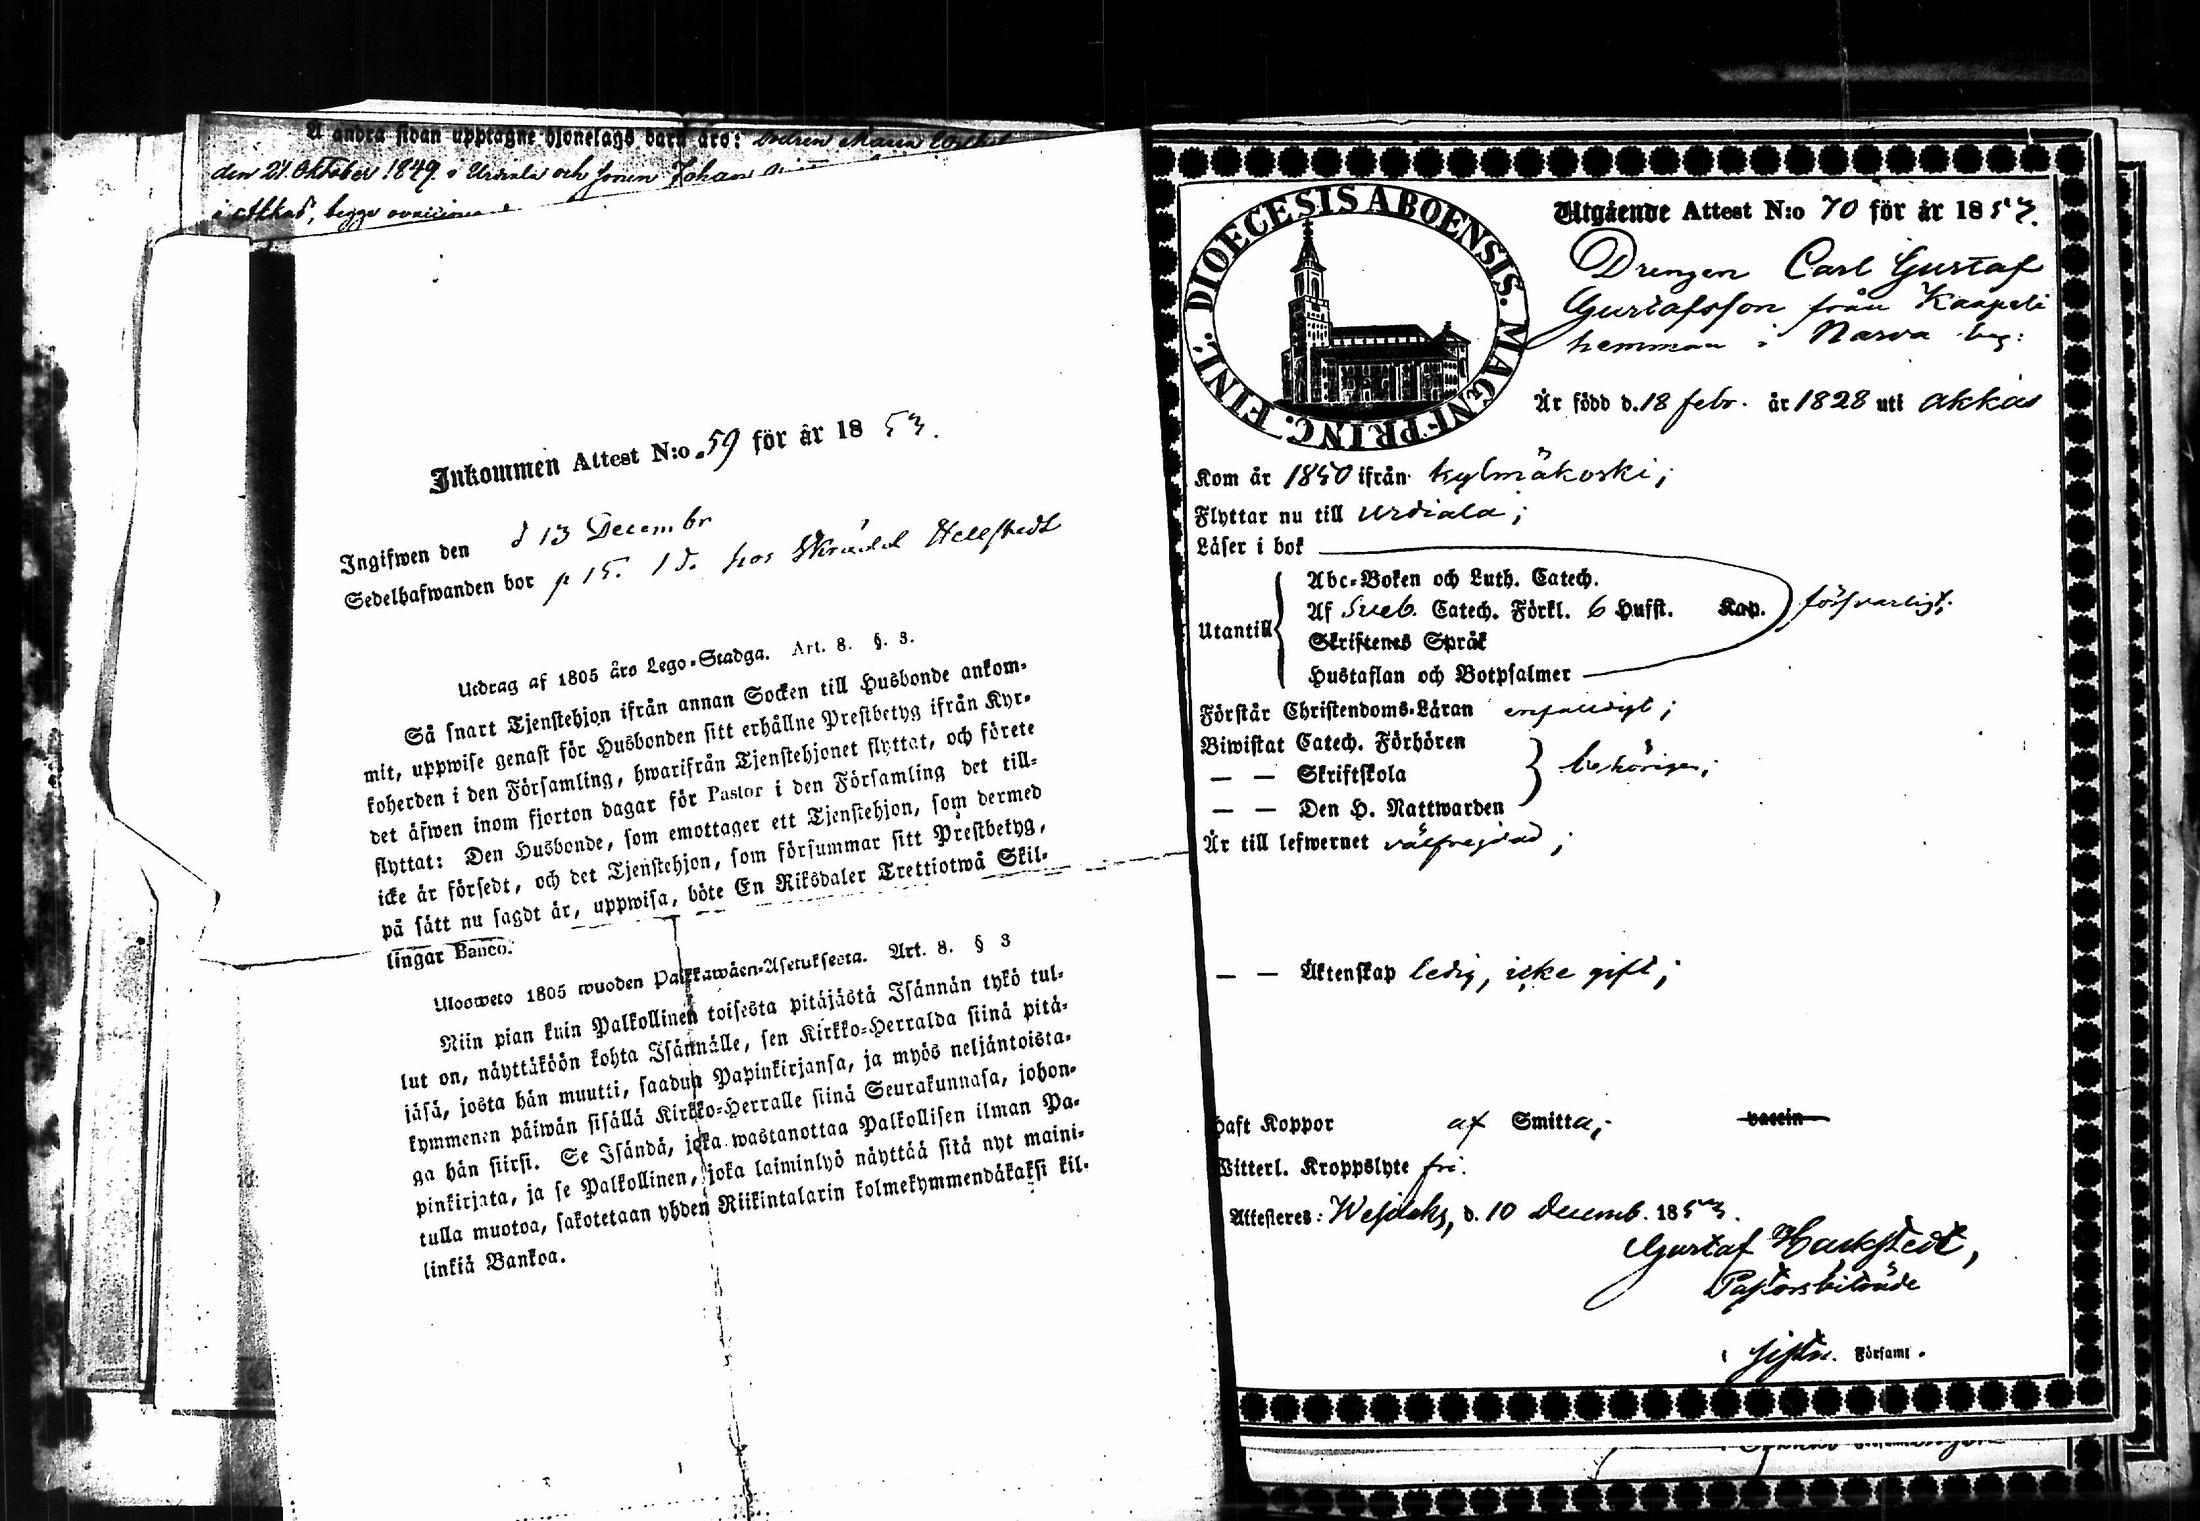 Å andra sidan upptagne hjonelags barn äro:
den 21 Oktober 1849 i Urdiala och sonen Johan
i Akkas, begge
Inkommen Attest N:o 59 för år 1853.
Ingifwen den d 13 Decembr
Sedelhafwanden bor p 15. hos Hellstedt
Utdrag af 1805 års Lego-Stadga. Art. 8. §. 3.
Så snart Tjenstehjon ifrån annan Socken till Husbonde ankom-
mit, uppwise genast för Husbonden sitt erhållne Prestbetyg ifrån Kyr-
koherden i den Församling, hwarifrån Tjenstehjonet flyttat, och förete
det äfwen inom fjorton dagar för Pastor i den Församling det till-
flyttat: Den Husbonde, som emottager ett Tjenstehjon, som dermed
icke är försedt, och det Tjenstehjon, som försummar sitt Prestbetyg,
på sätt nu sagdt är, uppwisa, böte En Riksdaler Trettiotwå Skil-
lingar Banco.
Ulosweto 1805 wuoden Palkkawäen-Asetuksesta. Art. 8. § 3
Niin pian kuin Palkollinen toisesta pitäjästä Isännän tykö tul-
lut on, näyttäköön kohta Isännälle, sen Kirkko-Herralda siinä pitä-
jäsä, josta hän muutti, saadun Papinkirjansa, ja myös neljäntoista-
kymmenen päiwän sisällä Kirkko-Herralle siinä Seurakunnasa, johon-
ga hän siirsi. Se Isändä, joka wastanottaa Palkollisen ilman Pa-
pinkirjata, ja se Palkollinen, joka laiminlyö näyttää sitä nyt maini-
tulla muotoa, sakotetaan yhden Riikintalarin kolmekymmendäkaksi kil-
linkiä Bankoa.
DIOECESIS ABOENSIS. MAGNI PRINC. FINL.
Utgående Attest N:o 70 för år 1853.
Drengen Carl Gustaf
Gustafsson från Kaapeli
hemman i Narva by:
Är född d. 18 febr. år 1828 uti Akkas
Kom år 1850 ifrån Kylmäkoski;
Flyttar nu till Urdiala;
Läser i bok
Abc-Boken och Luth. Catech.
Utantill Af Sveb. Catech. Förkl. 6 Hufst. Kap. försvarligt;
Skriftenes Språk
Hustaflan och Botpsalmer
Förstår Christendoms-Läran enfaldigt;
Biwistat Catech. Förhören
— — Skriftskola behörigen;
— — Den H. Nattwarden
Är till lefwernet välfrejdad;
— — Äktenskap ledig, icke gift;
haft Koppor af Smitta; vaccin
Witterl. Kroppslyte fri.
Attesteres: Wesilaks, d. 10 Decemb. 1853.
Gustaf Hackstedt,
Pastorsbiträde
i Församl.